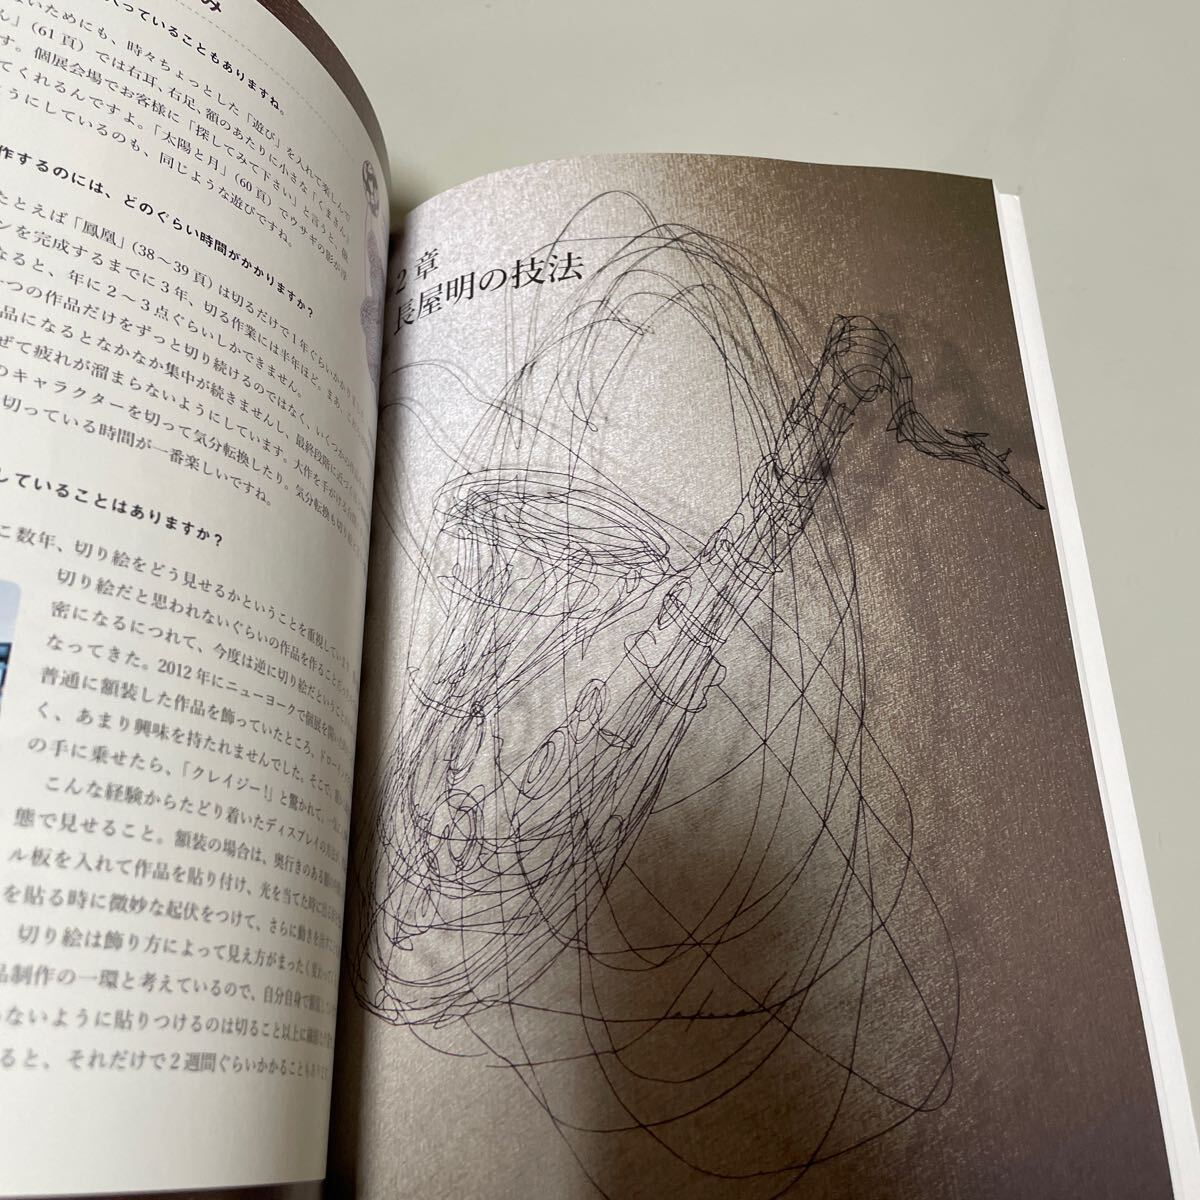 み
入っていることもありますね。
ないためにも、時々ちょっとした「遊び」を入れて楽しんで
ん」(61頁)では右耳、右足、額のあたりに小さな「くまさん」
す。個展会場でお客様に「探してみて下さい」と言うと、
てくれるんですよ。「太陽と月」(60頁)でウサギの影が浮
ようにしているのも、同じような遊びですね。
作するのには、どのぐらい時間がかかりますか?
たとえば「鳳凰」(38〜39頁)は切るだけで1年ぐらいかかりました
ンを完成するまでに3年、切る作業には半年ほど。まあ、
なると、年に2〜3点ぐらいしかできません。
一つの作品だけをずっと切り続けるのではなく、いくつかの作品
品になるとなかなか集中が続きませんし、最終段階に近づく
ぜて疲れが溜まらないようにしています。大作を手がける
のキャラクターを切って気分転換したり。気分転換も切り絵
切っている時間が一番楽しいですね。
していることはありますか?
こ数年、切り絵をどう見せるかということを重視しています。
切り絵だと思われないぐらいの作品を作ること
密になるにつれて、今度は逆に切り絵だということ
なってきた。2012年にニューヨークで個展を開いた
普通に額装した作品を飾っていたところ、ドローイング
く、あまり興味を持たれませんでした。そこで、
の手に乗せたら、「クレイジー!」と驚かれて、
こんな経験からたどり着いたディスプレイの方法が、
態で見せること。額装の場合は、奥行きのある額
ル板を入れて作品を貼り付け、光を当てた時に
を貼る時に微妙な起伏をつけて、さらに動きを出す
切り絵は飾り方によって見え方がまったく変わって
品制作の一環と考えているので、自分自身で額装
らないように貼りつけるのは切ること以上に
ると、それだけで2週間ぐらいかかることもあります
2章
長屋明の技法